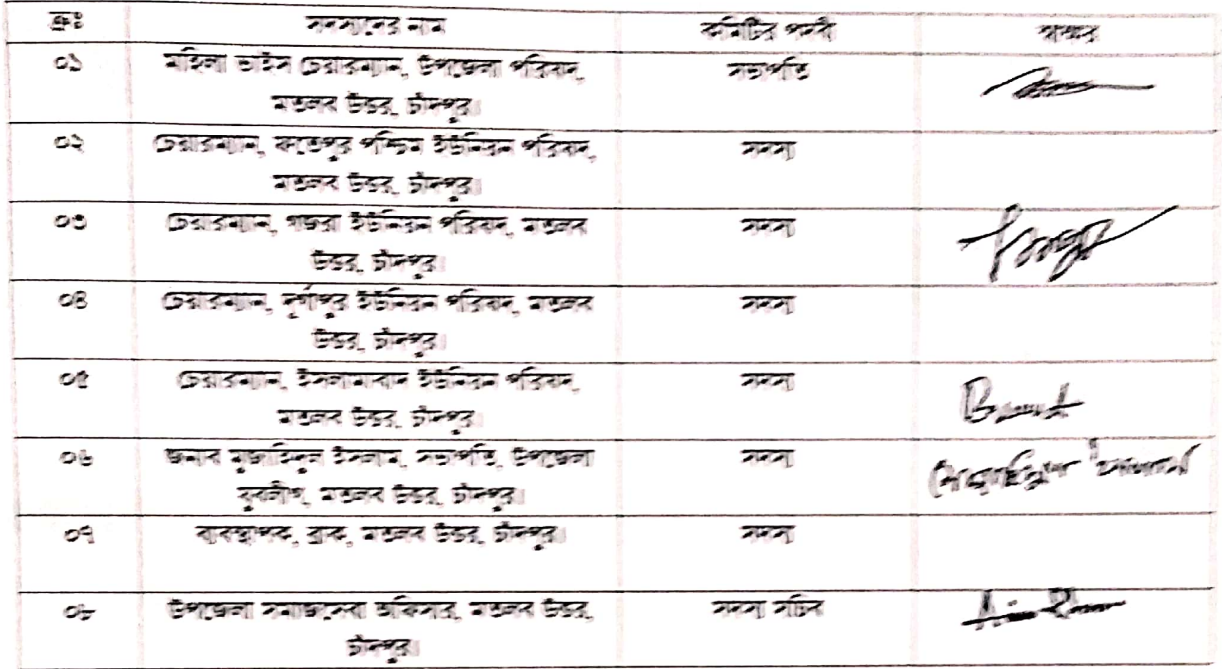 ক্রঃ সদস্যদের নাম কমিটির পদবী স্বাক্ষর
০১ মহিলা ভাইস চেয়ারম্যান, উপজেলা পরিষদ, সভাপতি
মতলব উত্তর, চাঁদপুর।
০২ চেয়ারম্যান, ফতেপুর পশ্চিম ইউনিয়ন পরিষদ, সদস্য
মতলব উত্তর, চাঁদপুর।
০৩ চেয়ারম্যান, গজরা ইউনিয়ন পরিষদ, মতলব সদস্য
উত্তর, চাঁদপুর।
০৪ চেয়ারম্যান, দূর্গাপুর ইউনিয়ন পরিষদ, মতলব সদস্য
উত্তর, চাঁদপুর।
০৫ চেয়ারম্যান, ইসলামাবাদ ইউনিয়ন পরিষদ, সদস্য
মতলব উত্তর, চাঁদপুর।
০৬ জনাব মুজাহিদুল ইসলাম, সভাপতি, উপজেলা সদস্য
যুবলীগ, মতলব উত্তর, চাঁদপুর।
০৭ ব্যবস্থাপক, ব্রাক, মতলব উত্তর, চাঁদপুর। সদস্য
০৮ উপজেলা সমাজসেবা অফিসার, মতলব উত্তর, সদস্য সচিব
চাঁদপুর।